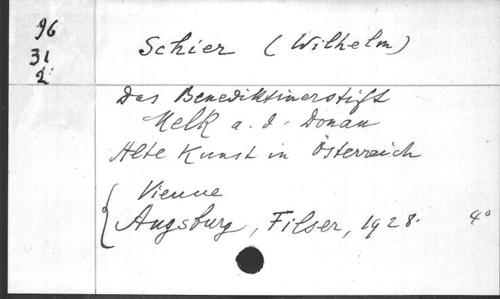 96
31
2
Schier (Wilhelm)
Das Benediktinerstift
Melk a. d. Donau
Alte Kunst in Österreich
Vienne
Augsburg, Filser, 1928. 4°